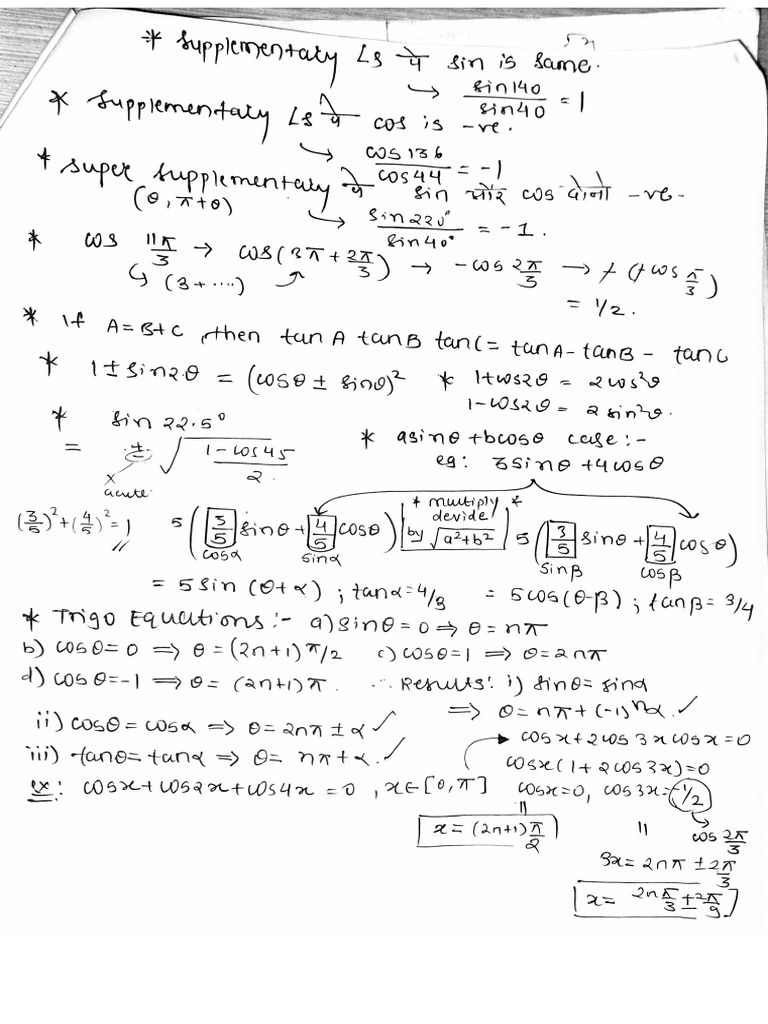 * Supplementary ∠s में sin is same.
↳ sin140/sin40 = 1
* Supplementary ∠s में cos is -ve.
↳ cos136/cos44 = -1
* Super supplementary में sin और cos दोनो -ve-
(θ, π+θ) ↳ sin220°/sin40° = -1.
* cos 11π/3 → cos(3π + 2π/3) → -cos 2π/3 → + (+cos π/3)
↳ (3+....) = 1/2.
* If A=B+C, then tanA tanB tanC = tanA-tanB - tanC
* 1±sin2θ = (cosθ ± sinθ)² * 1+cos2θ = 2cos²θ
1-cos2θ = 2sin²θ.
* sin 22.5° * asinθ+bcosθ case:-
= ± √(1-cos45/2) eg: 3sinθ+4cosθ
x acute
(3/5)²+(4/5)²=1 5(3/5 sinθ + 4/5 cosθ) * multiply devide * by √a²+b² 5(3/5 sinθ + 4/5 cosθ)
cosα sinα sinβ cosβ
= 5sin(θ+α) ; tanα=4/3 = 5cos(θ-β) ; tanβ= 3/4
* Trigo Equations:- a) sinθ=0 ⇒ θ=nπ
b) cosθ=0 ⇒ θ=(2n+1)π/2 c) cosθ=1 ⇒ θ=2nπ
d) cosθ=-1 ⇒ θ= (2n+1)π. Results: i) sinθ= sinα
⇒ θ=nπ+(-1)ⁿα. ✓
ii) cosθ=cosα ⇒ θ=2nπ ± α ✓
iii) tanθ= tanα ⇒ θ= nπ+α. ✓
cosx+2cos3xcosx=0
cosx(1+2cos3x)=0
ex: cosx+cos2x+cos4x =0, x∈[0,π] cosx=0, cos3x=-1/2
x=(2n+1)π/2 cos 2π/3
3x= 2nπ ± 2π/3
x= 2nπ/3 ± 2π/9